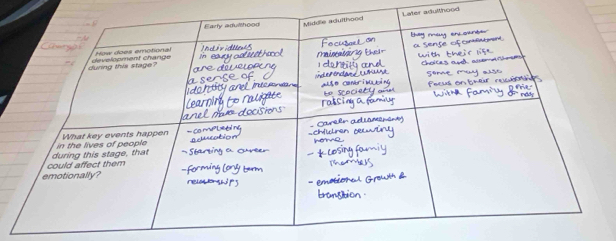 Early adulthood
Middle adulthood
Later adulthood
How does emotional
development change
during this stage?
Individuals
in early adulthood
are developing
a sense of
identity and
Learning to navigate
and make decisions
Focused on
maintaining their
identity and
independence whilst
also contributing
to scociety and
raising a family
they may encounter
a sense of contentment
with their life
choices and
some may also
focus on their
with family &
What key events happen
in the lives of people
during this stage, that
could affect them
emotionally?
- completing
education
- Starting a career
- forming long term
relationships
- career
- children
home
- losing family
- emotional Growth &
transition.